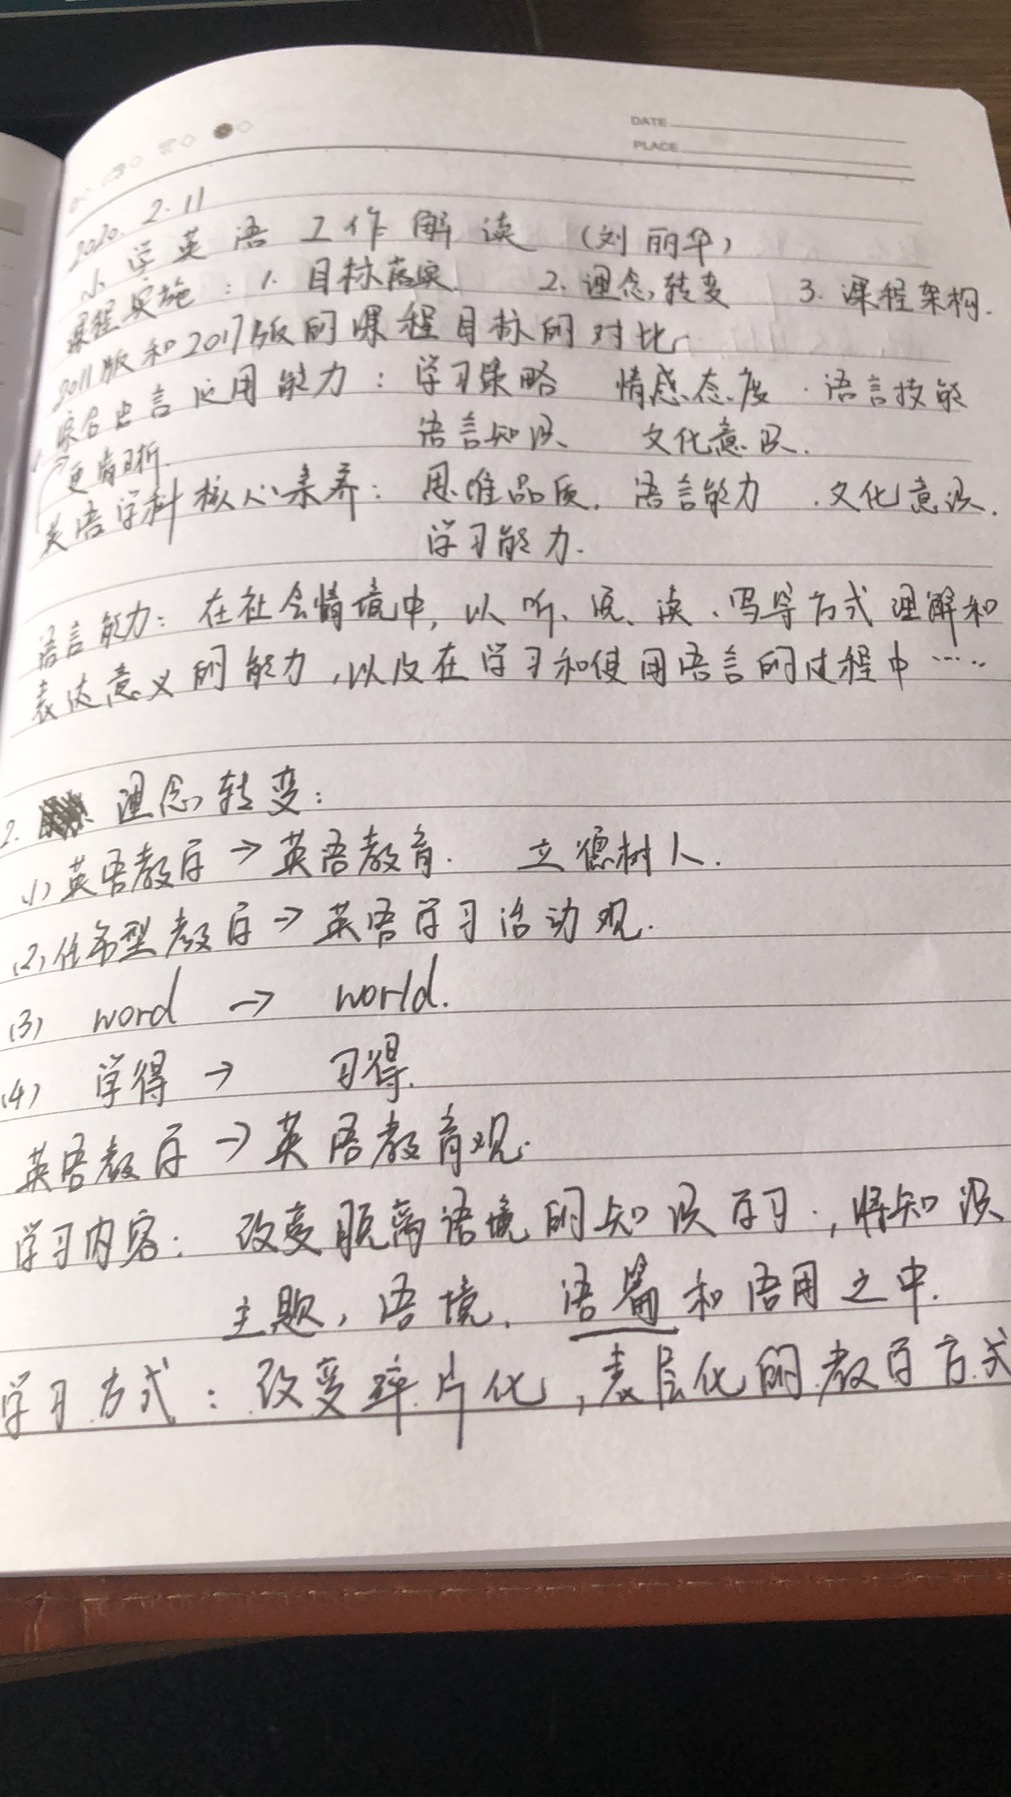 DATE
PLACE
2020. 2.11
小学英语工作解读（刘丽华）
课程实施：1. 目标落实 2. 理念转变 3. 课程架构.
2011版和2017版的课程目标的对比
综合语言应用能力：学习策略 情感态度 . 语言技能
语言知识 文化意识.
→更清晰.
英语学科核心素养：思维品质. 语言能力 . 文化意识.
学习能力.
语言能力：在社会情境中，以听、说、读、写等方式理解和
表达意义的能力，以及在学习和使用语言的过程中……
2. 理念转变：
(1) 英语教学→英语教育. 立德树人.
(2) 任务型教学→英语学习活动观.
(3) word → world.
(4) 学得 → 习得.
英语教学→英语教育观.
学习内容：改变脱离语境的知识学习.，将知识
主题，语境，语篇和语用之中.
学习方式：改变碎片化，表层化的教学方式